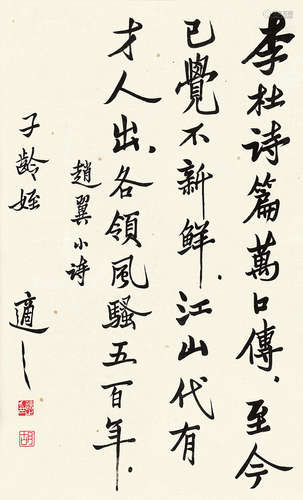 李杜诗篇萬口傳、至今
已覺不新鮮、江山代有
才人出、各領風騷五百年、
趙翼小诗
子龄姪
適之
胡